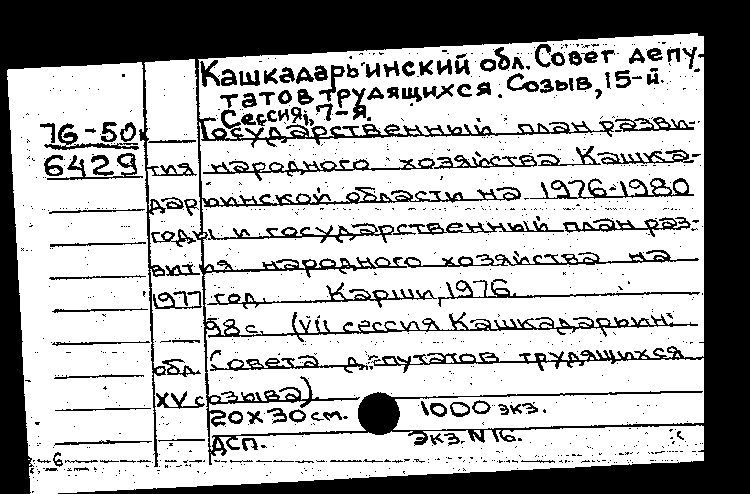 Кашкадарьинский обл. Совет депу-
татов трудящихся. Созыв, 15-й.
Сессия, 7-я.
76-50к
6429
Государственный план разви-
тия народного хозяйства Кашка-
дарьинской области на 1976-1980
годы и государственный план раз-
вития народного хозяйства на
1977 год. Карши, 1976.
98 с. (VII сессия Кашкадарьин.
обл. Совета депутатов трудящихся
XV созыва)
20х30 см. 1000 экз.
ДСП. Экз. N 16.
6